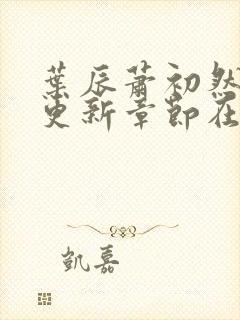 葉辰蕭初然
更新章節在
凱嘉